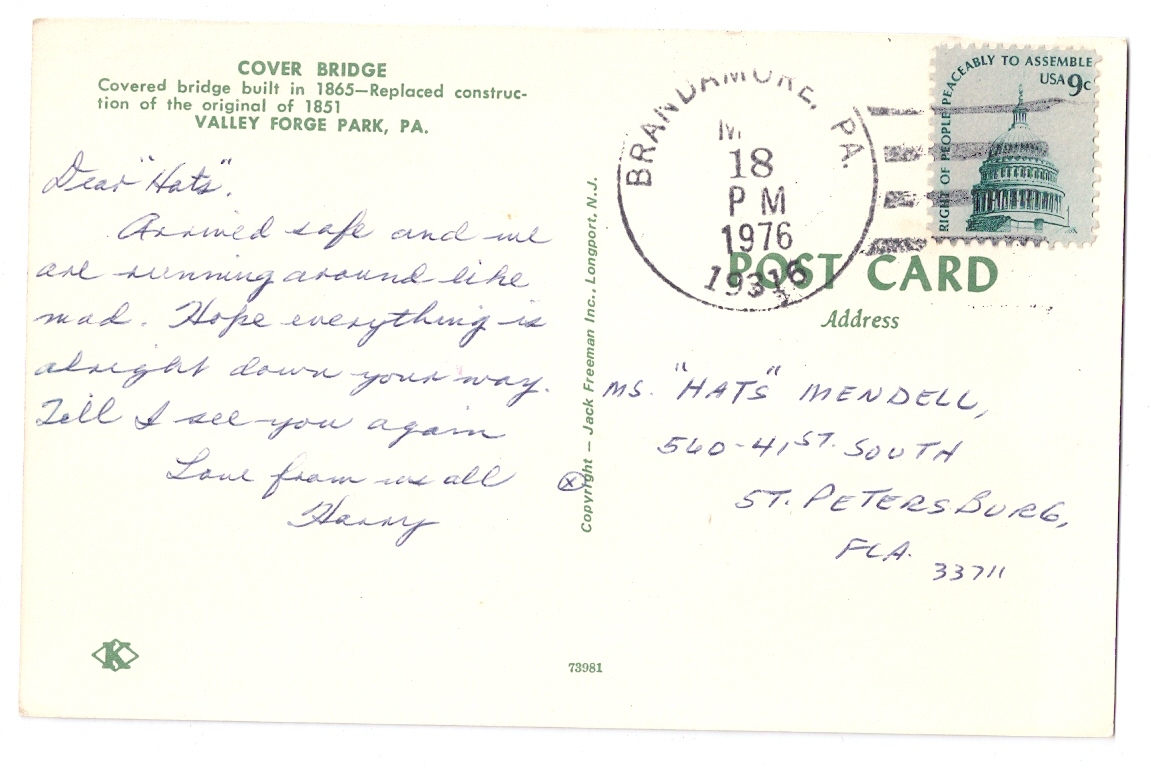 COVER BRIDGE
Covered bridge built in 1865—Replaced construc-
tion of the original of 1851
VALLEY FORGE PARK, PA.
Dear "Hats".
Arrived safe and we
are running around like
mad. Hope everything is
alright down your way.
Till I see you again
Love from us all
Harry
K
Copyright — Jack Freeman Inc., Longport, N.J.
73981
BRANDAMORE, PA.
M
18
PM
1976
19316
RIGHT OF PEOPLE PEACEABLY TO ASSEMBLE
USA 9c
POST CARD
Address
MS. "HATS" MENDELL,
560-41ST. SOUTH
ST. PETERSBURG,
FLA.
33711